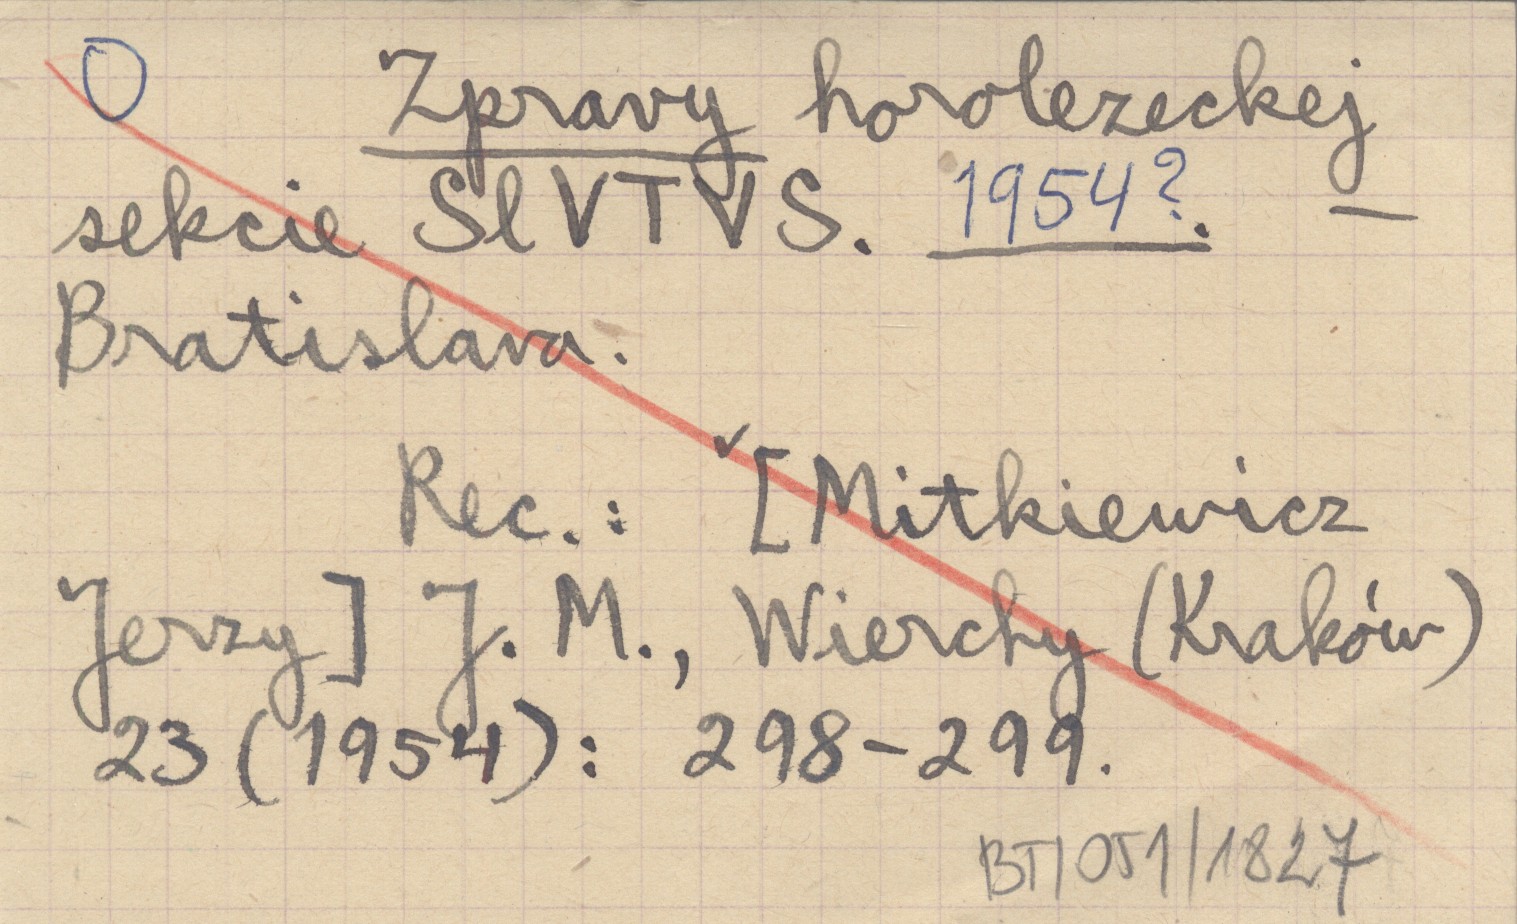 O Zpravy horolezeckej
sekcie SlVTVS. 1954?. —
Bratislava.
Rec.: ✓[Mitkiewicz
Jerzy] J. M., Wierchy (Kraków)
23 (1954): 298-299.
BT/051/1827